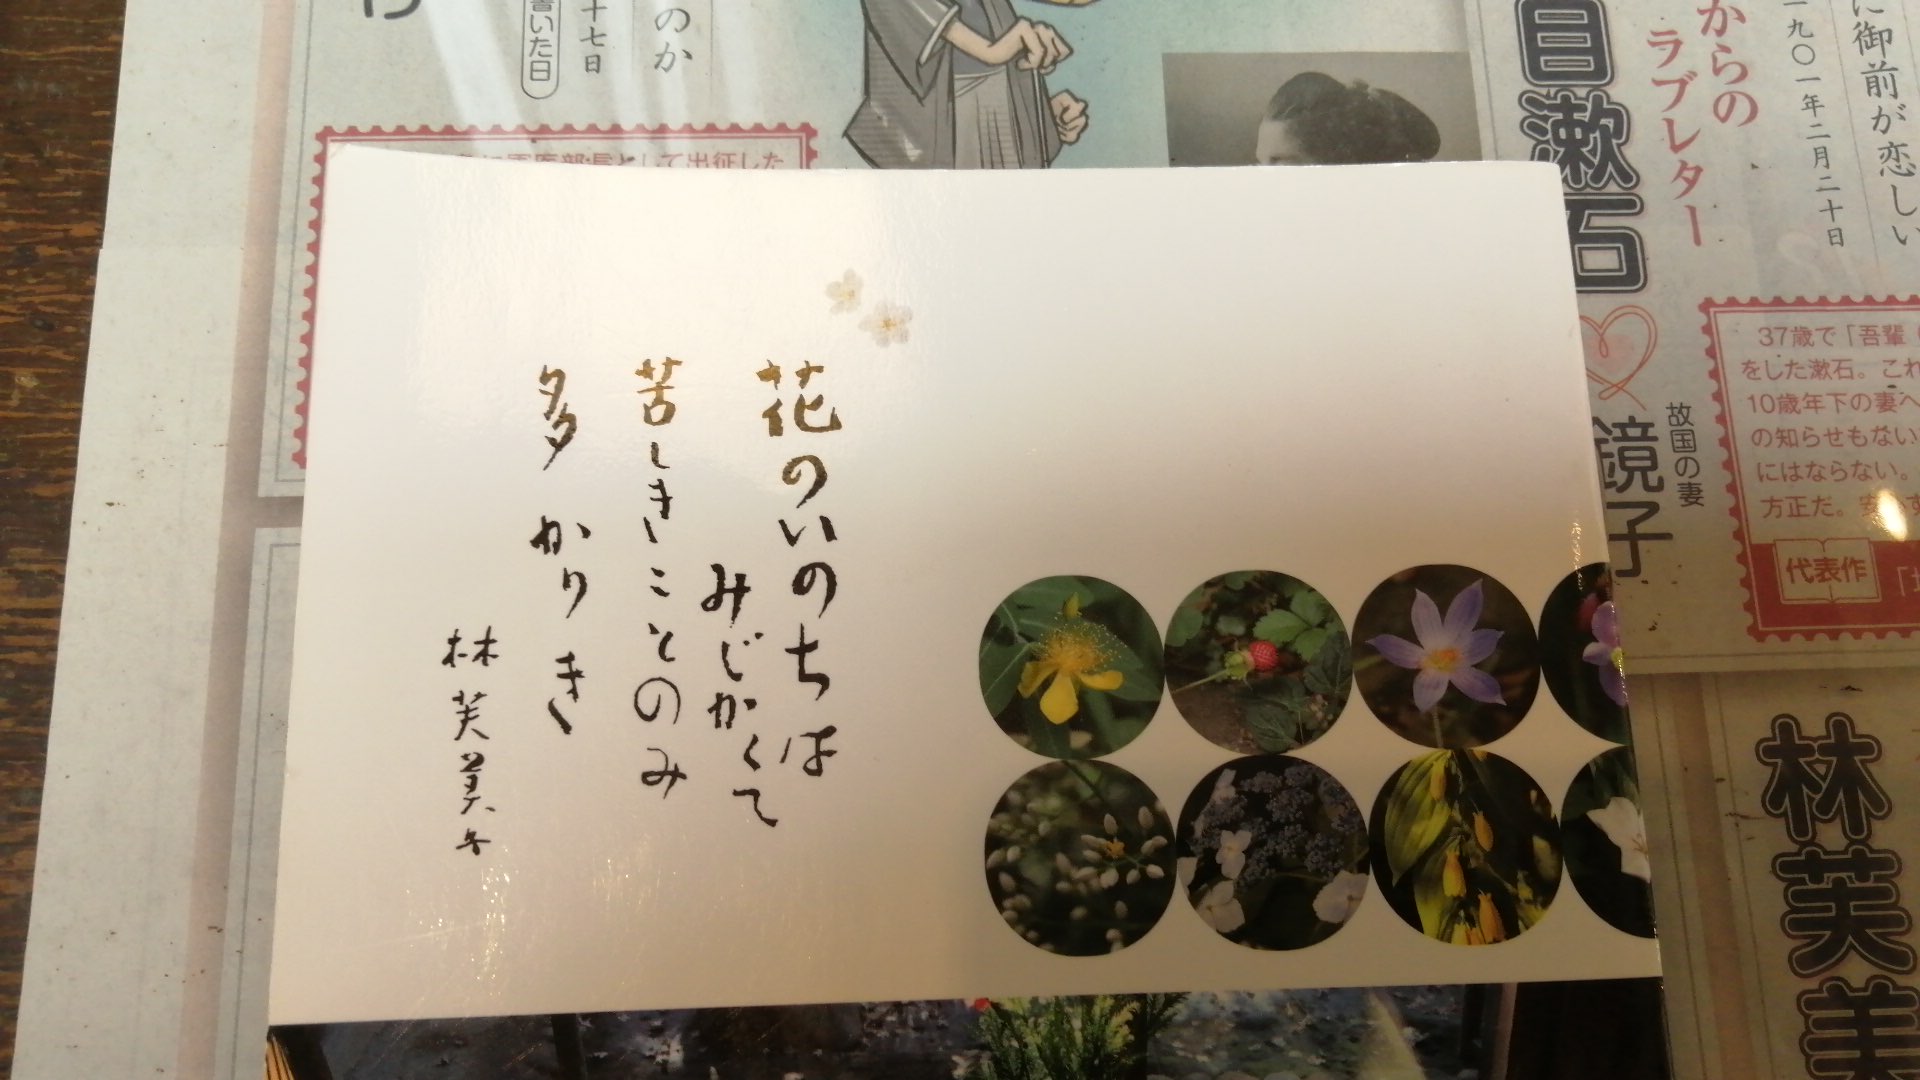 花のいのちは
みじかくて
苦しきことのみ
多かりき
林芙美子
からの
ラブレター
目漱石
故国の妻
鏡子
に御前が恋しい
一九〇一年二月二十日
37歳で「吾輩
をした漱石。これ
10歳年下の妻へ
の知らせもない
にはならない。
方正だ。
代表作
林芙美
のか
十七日
書いた日
として出征した